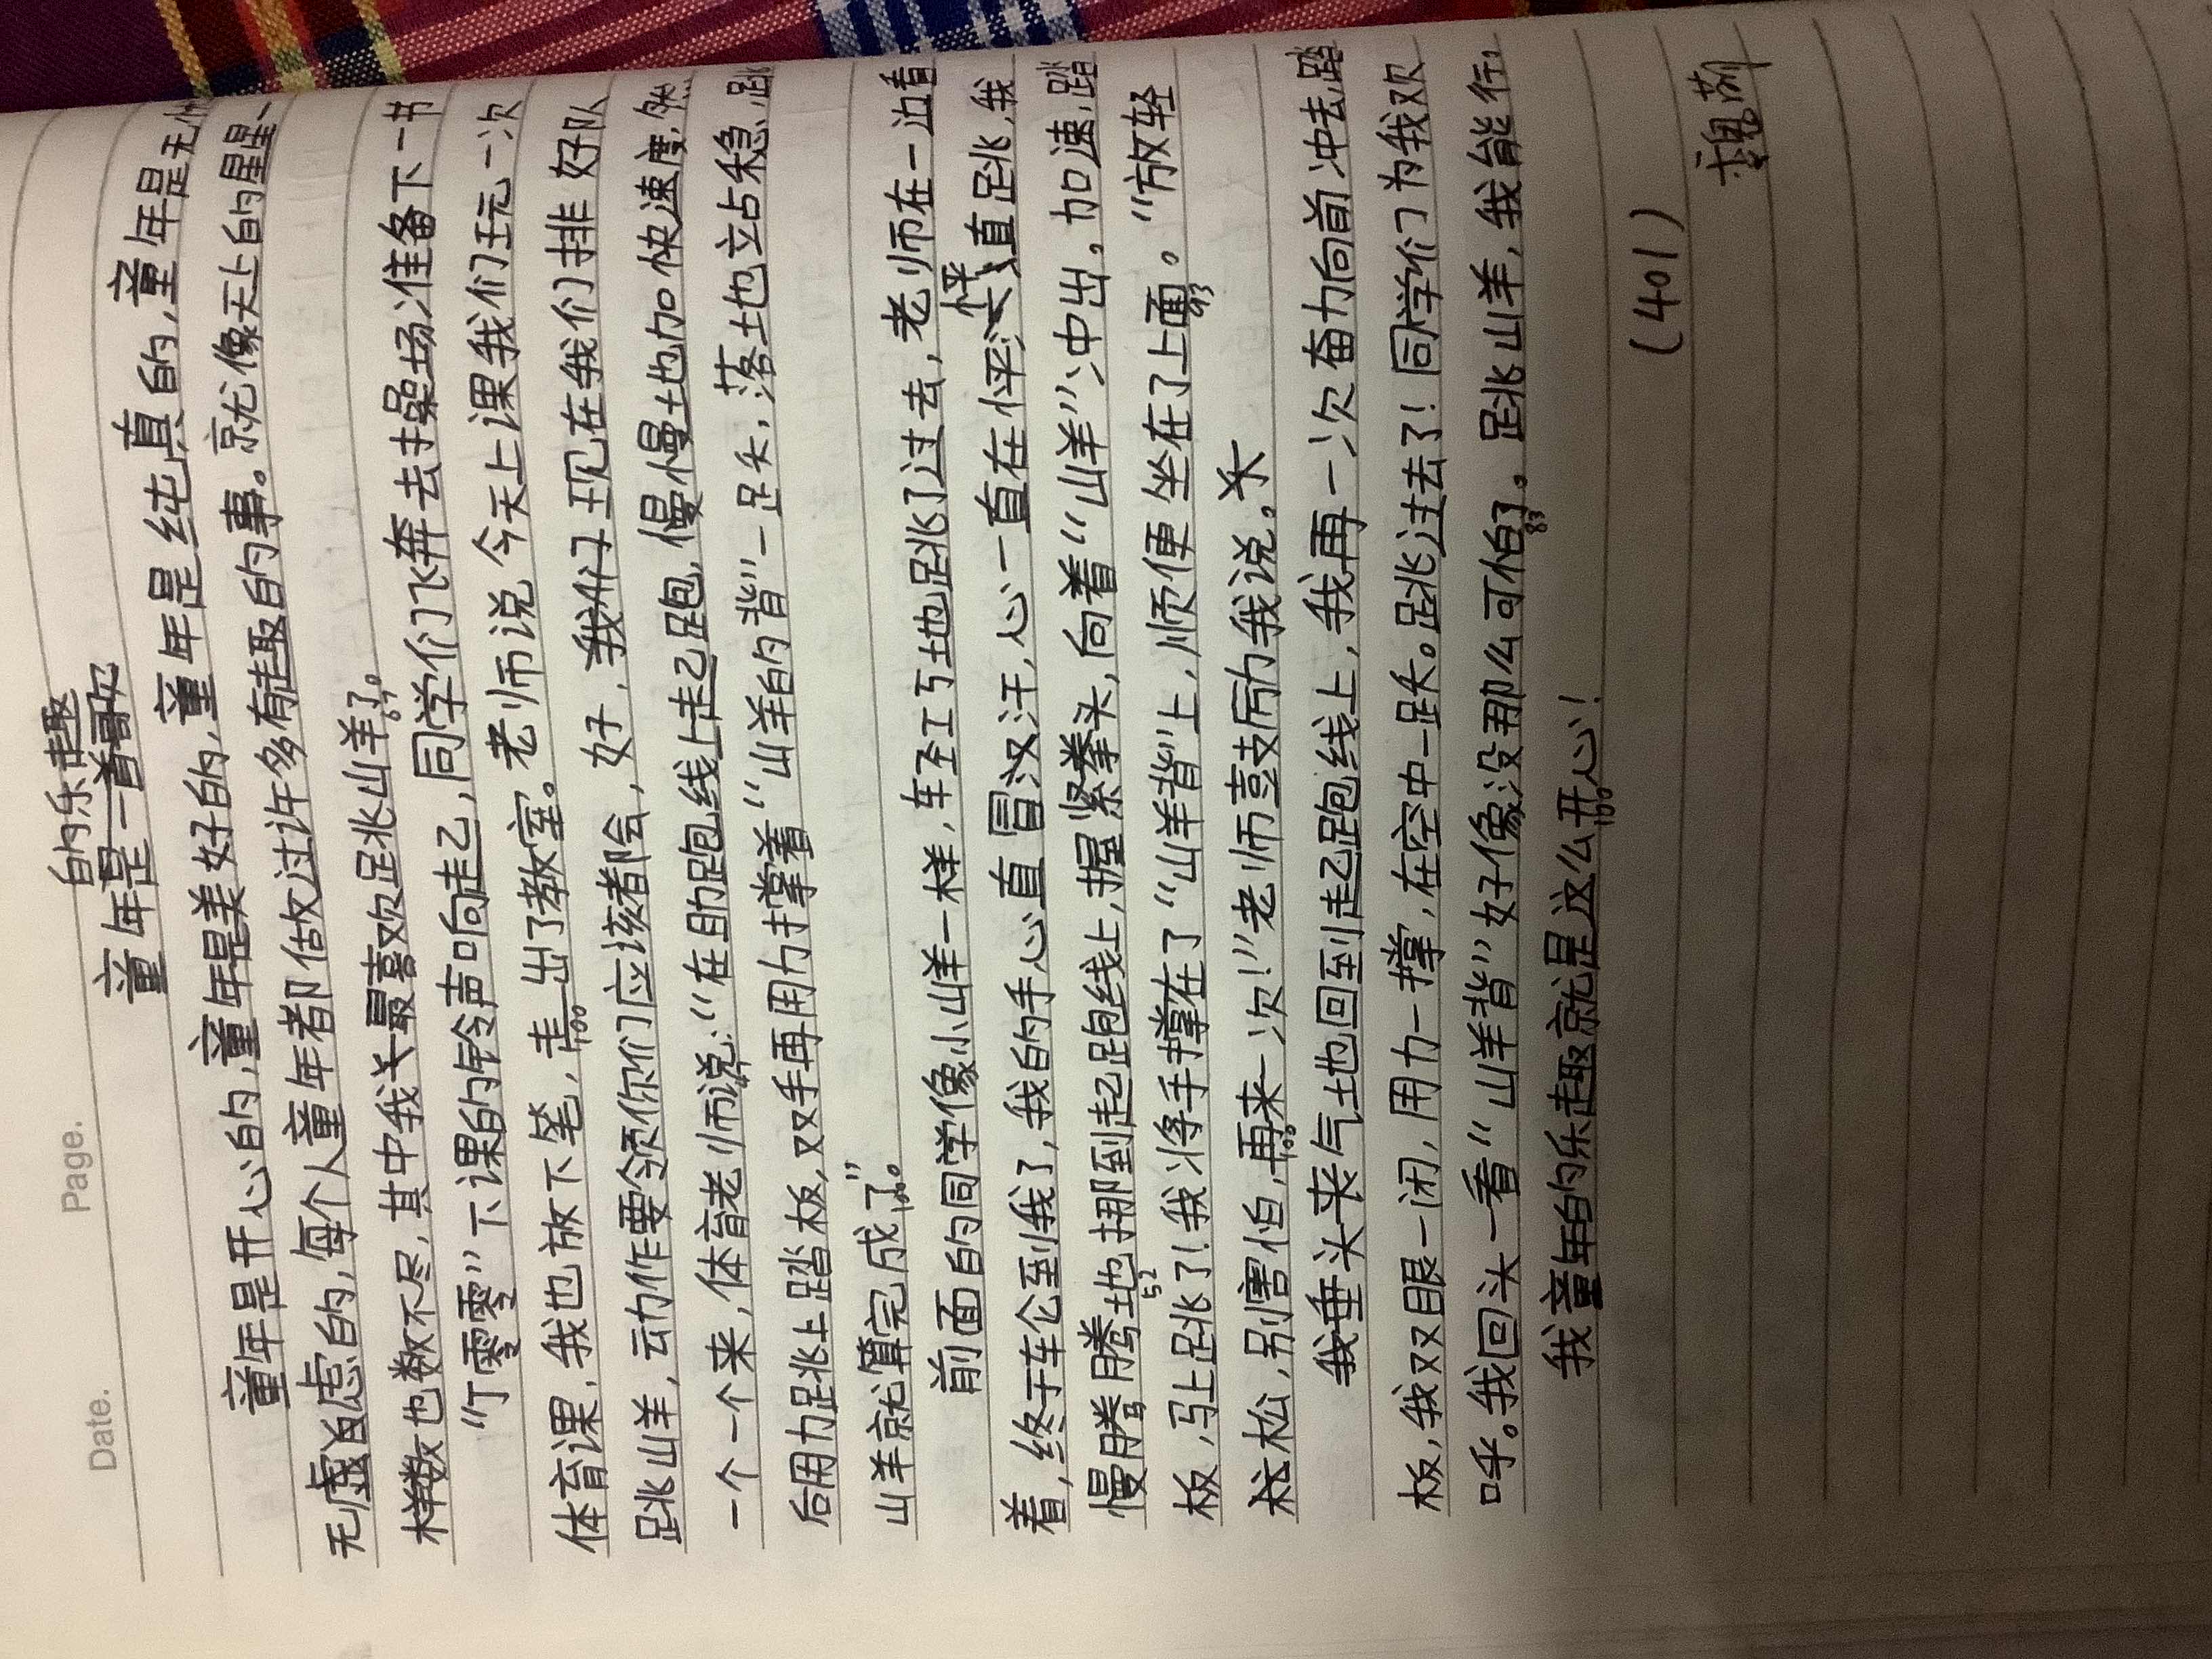 Date.
Page.
的乐趣
童年是一首歌
童年是开心的,童年是美好的,童年是纯真的,童年是无忧
无虑的,每个人童年都做过许多有趣的事。就像天上的星星一
样数也数不尽,其中我最喜欢跳山羊了。
“丁零零”下课的铃声响起,同学们飞奔去操场准备下一节
体育课,我也放下笔,走出了教室。老师说今天上课我们玩一次
跳山羊,动作要领你们应该都会,好,我们现在我们排好队
一个一个来,体育老师说:“在助跑线上起跑,慢慢地加快速度,然
后用力跳上踏板,双手再用力撑着“山羊的背”一跃,落地立站稳,跳
山羊就算完成了”。
前面的同学像小山羊一样,轻巧地跳了过去,老师在一边看
着,终于轮到我了,我的手心直冒汉汗,心一直在怦怦直跳,我
慢腾腾地挪到起跑线上,握紧拳头,向着“山羊”冲出。加速,踏
板,马上跳了!我将手撑在了“山羊背”上,顺便坐在了上面。“放轻
松,别害怕,再来一次!”老师鼓励我说。
我垂头丧气地回到起跑线上,我再一次奋力向前冲去,踏
板,我双眼一闭,用力一撑,在空中一跃。跳过去了!同学们为我欢
呼。我回头一看“山羊背”好像没那么可怕了。跳山羊,我能行,
我童年的乐趣就是这么开心!
(401)